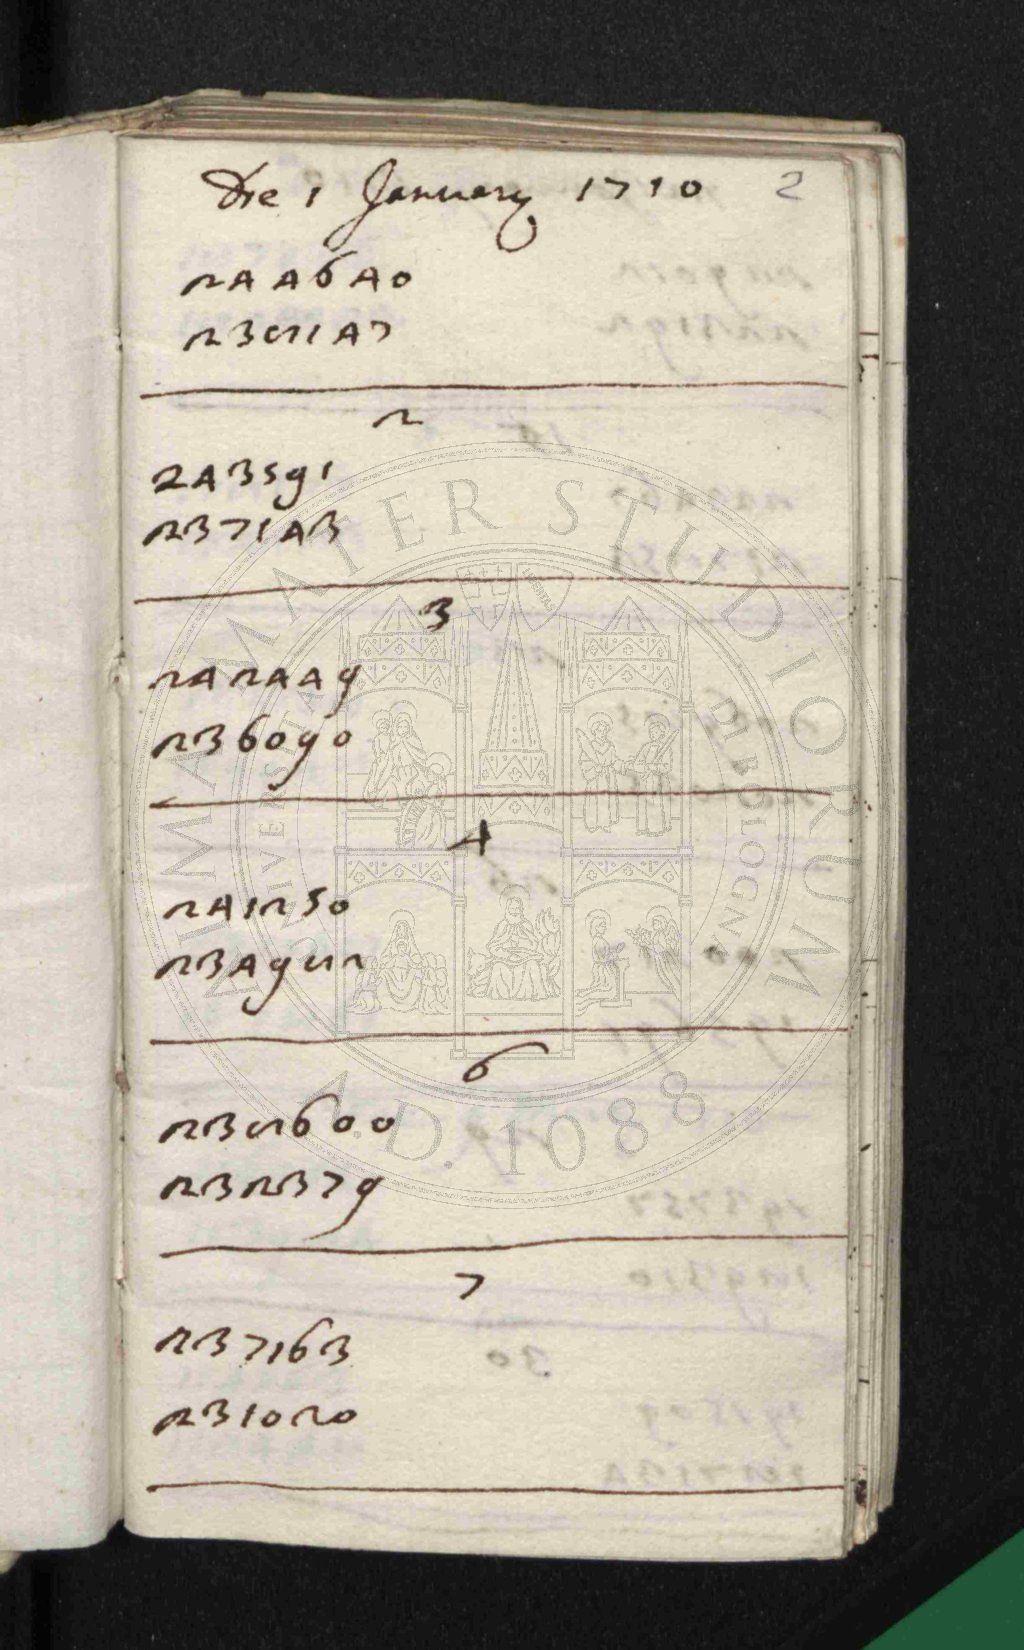 Die 1 January 1710 2
244640
238147
2
243591
237143
3
242449
236090
4
241250
234982
6
238600
232379
7
237163
231020
ALMA MATER STUDIORUM
UNIVERSITAS DI BOLOGNA
A.D. 1088